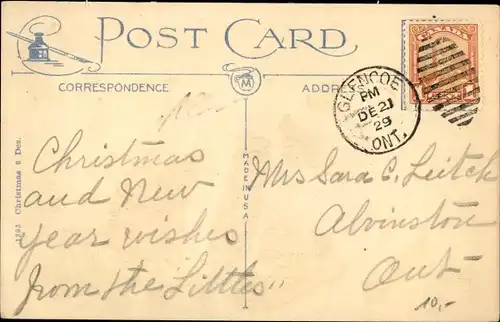 POST CARD
CORRESPONDENCE
ADDRE
GLENCOE
PM
DE 21
29
ONT.
Christmas
and New
year wishes
from the Littles"
Mrs Sara C. Leitch
Alvinston
Ont
10,-
MADE IN USA
1293 Christmas 6 Des.
M